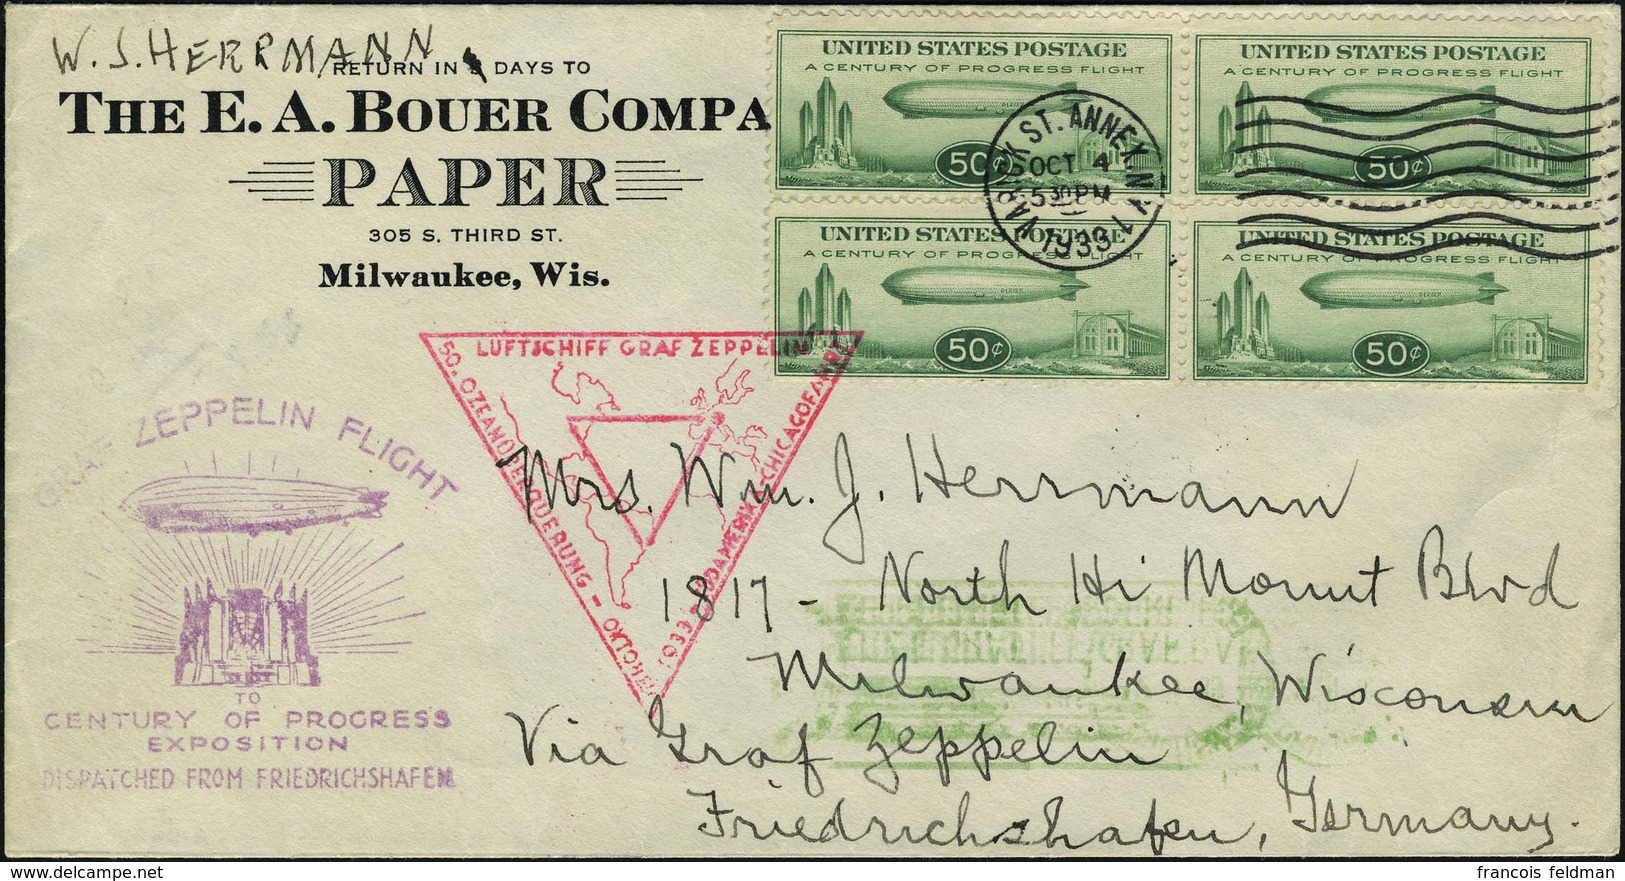 W. J. HERRMANN
RETURN IN 5 DAYS TO
THE E. A. BOUER COMPA
PAPER
305 S. THIRD ST.
Milwaukee, Wis.
UNITED STATES POSTAGE
A CENTURY OF PROGRESS FLIGHT
50¢
UNITED STATES POSTAGE
A CENTURY OF PROGRESS FLIGHT
50¢
UNITED STATES POSTAGE
A CENTURY OF PROGRESS FLIGHT
50¢
UNITED STATES POSTAGE
A CENTURY OF PROGRESS FLIGHT
50¢
VARICK ST. ANNEX. N.Y.
OCT 4
530 PM
1933
LUFTSCHIFF GRAF ZEPPELIN
50. OZEANÜBERQUERUNG - OKTOBER
1933 - SÜDAMERIKA-CHICAGOFAHRT
GRAF ZEPPELIN FLIGHT
TO
CENTURY OF PROGRESS
EXPOSITION
DISPATCHED FROM FRIEDRICHSHAFEN
Mrs. Wm. J. Herrmann
1817 - North Hi Mount Blvd
Milwaukee, Wisconsin
Via Graf Zeppelin
Friedrichshafen, Germany.
francois feldman